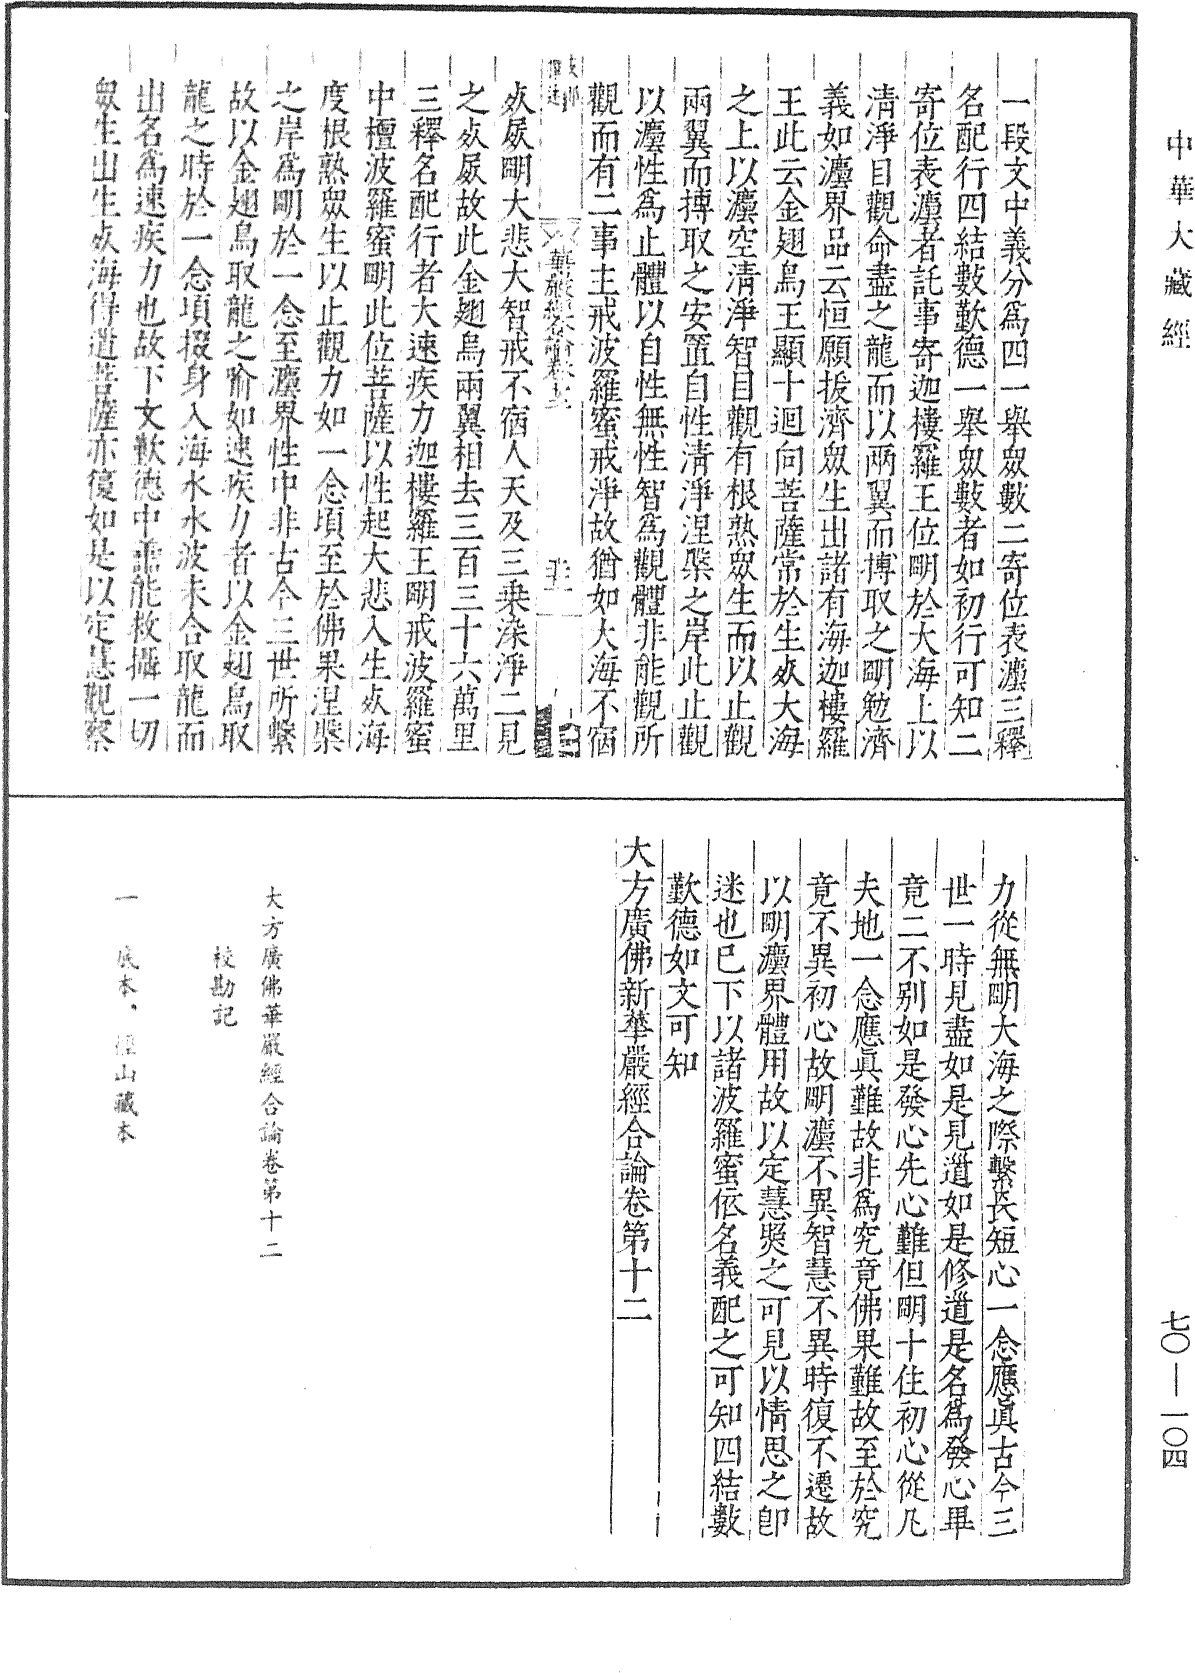 中華大藏經
一段文中義分爲四一舉眾數二寄位表灋三釋
名配行四結數歎德一舉眾數者如初行可知二
寄位表灋者託事寄迦樓羅王位明於大海上以
清淨目觀命盡之龍而以兩翼而搏取之明勉濟
義如灋界品云恒願拔濟眾生出諸有海迦樓羅
王此云金翅鳥王顯十迴向菩薩常於生死大海
之上以灋空清淨智目觀有根熟眾生而以止觀
兩翼而搏取之安置自性清淨涅槃之岸此止觀
以灋性爲止體以自性無性智爲觀體非能觀所
觀而有二事主戒波羅蜜戒淨故猶如大海不宿
死屍明大悲大智戒不宿人天及三乗染淨二見
之死屍故此金翅鳥兩翼相去三百三十六萬里
三釋名配行者大速疾力迦樓羅王明戒波羅蜜
中檀波羅蜜明此位菩薩以性起大悲入生死海
度根熟眾生以止觀力如一念頃至於佛果涅槃
之岸爲明於一念至灋界性中非古今三世所繫
故以金翅鳥取龍之喻如速疾力者以金翅鳥取
龍之時於一念頃掇身入海水水波未合取龍而
出名爲速疾力也故下文歎德中悉能救攝一切
眾生出生死海得道菩薩亦復如是以定慧觀察
力從無明大海之際繫長短心一念應眞古今三
世一時見盡如是見道如是修道是名爲發心畢
竟二不別如是發心先心難但明十住初心從凡
夫地一念應眞難故非爲究竟佛果難故至於究
竟不異初心故明灋不異智慧不異時復不遷故
以明灋界體用故以定慧照之可見以情思之卽
迷也已下以諸波羅蜜依名義配之可知四結數
歎德如文可知
大方廣佛新華嚴經合論卷第十二
大方廣佛華嚴經合論卷第十二
校勘記
一　底本，徑山藏本
七〇—一〇四